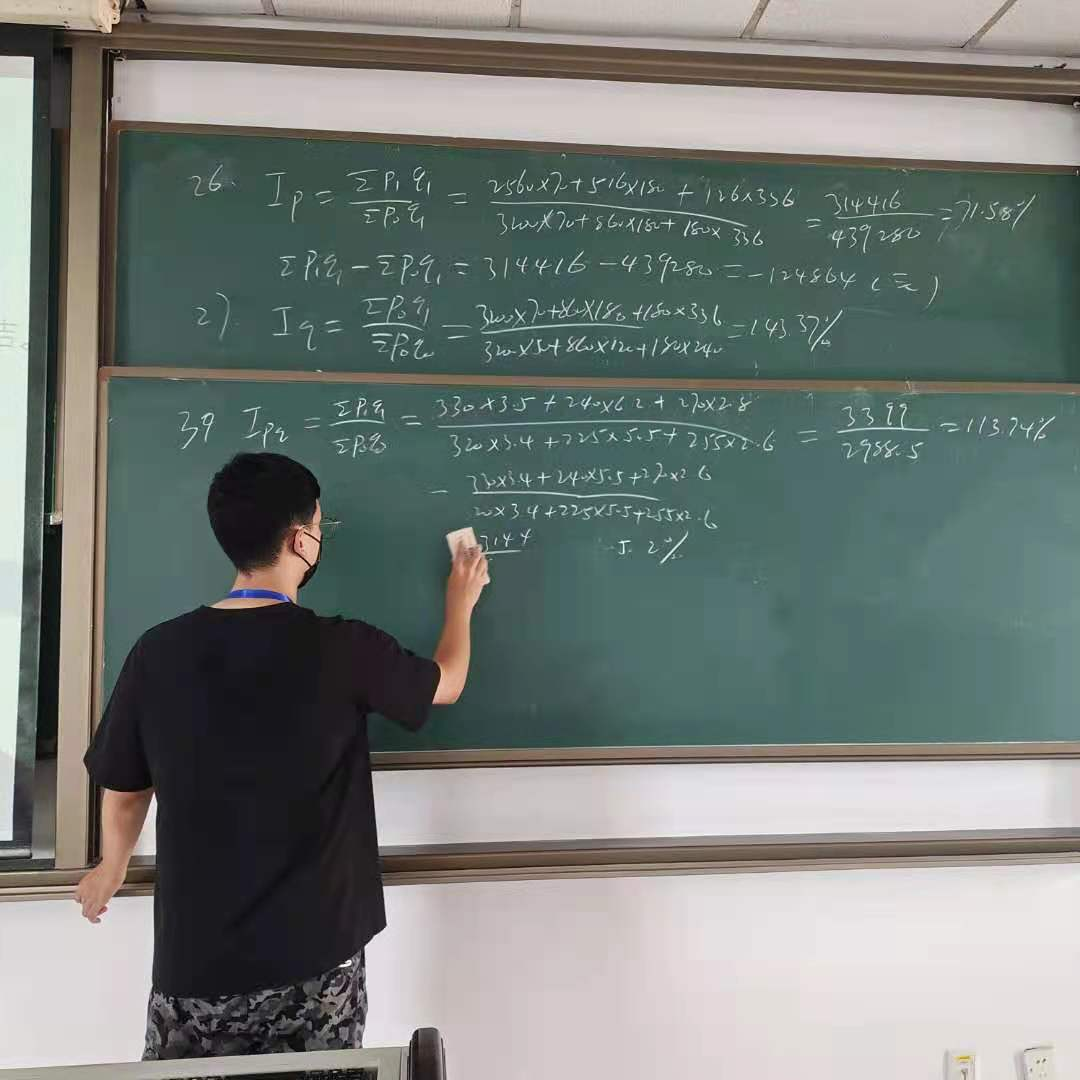 26. Ip = ΣP₁q₁/ΣP₀q₁ = 2560×70+516×180+126×336/3200×70+860×180+180×336 = 314416/439280 = 71.58%
ΣP₁q₁ - ΣP₀q₁ = 314416 - 439280 = -124864 (元)
2) Iq = ΣP₀q₁/ΣP₀q₀ = 3200×70+860×180+180×336/3200×50+860×120+180×240 = 143.37%
39 Ipq = ΣP₁q₁/ΣP₀q₀ = 330×3.5+240×6.2+270×2.8/320×3.4+225×5.5+255×2.6 = 3399/2988.5 = 113.74%
330×3.4+240×5.5+270×2.6/20×3.4+225×5.5+255×2.6
3144 5.2%